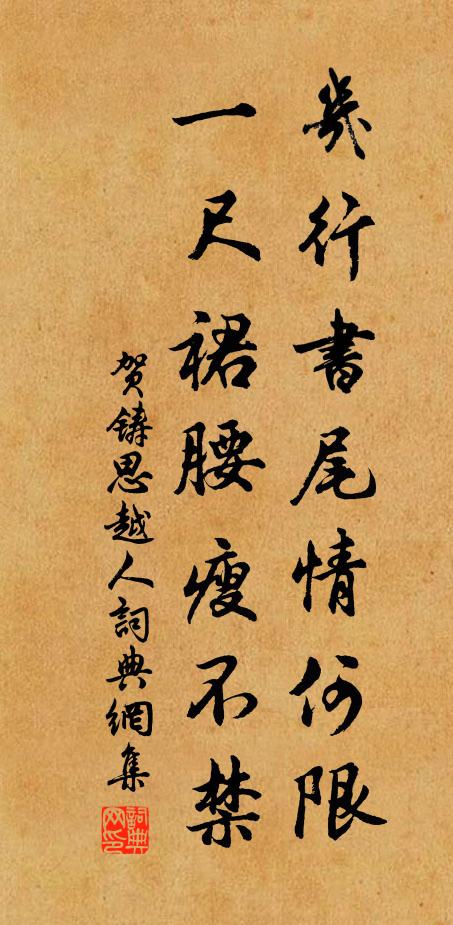 幾行書尾情何限
一尺裙腰瘦不禁
賀鑄思越人詞典網集
詞典網印